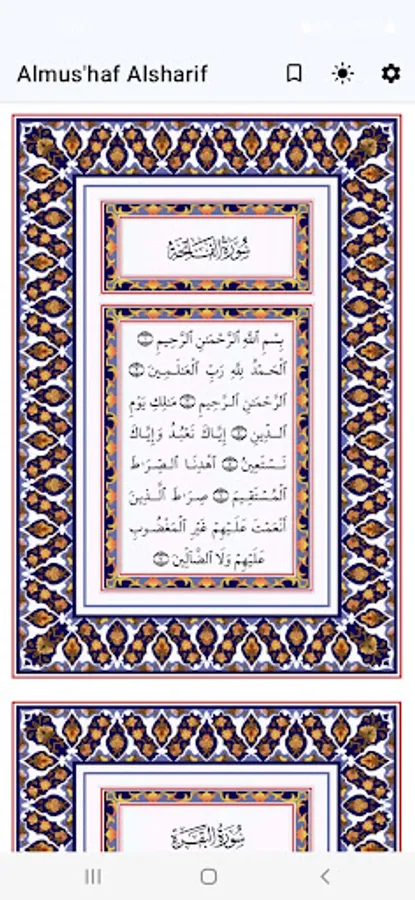 Almus'haf Alsharif
سُورَةُ الفَاتِحَةِ
بِسْمِ ٱللَّهِ ٱلرَّحْمَٰنِ ٱلرَّحِيمِ ۝
ٱلْحَمْدُ لِلَّهِ رَبِّ ٱلْعَٰلَمِينَ ۝
ٱلرَّحْمَٰنِ ٱلرَّحِيمِ ۝ مَٰلِكِ يَوْمِ
ٱلدِّينِ ۝ إِيَّاكَ نَعْبُدُ وَإِيَّاكَ
نَسْتَعِينُ ۝ ٱهْدِنَا ٱلصِّرَٰطَ
ٱلْمُسْتَقِيمَ ۝ صِرَٰطَ ٱلَّذِينَ
أَنْعَمْتَ عَلَيْهِمْ غَيْرِ ٱلْمَغْضُوبِ
عَلَيْهِمْ وَلَا ٱلضَّآلِّينَ ۝
سُورَةُ البَقَرَةِ